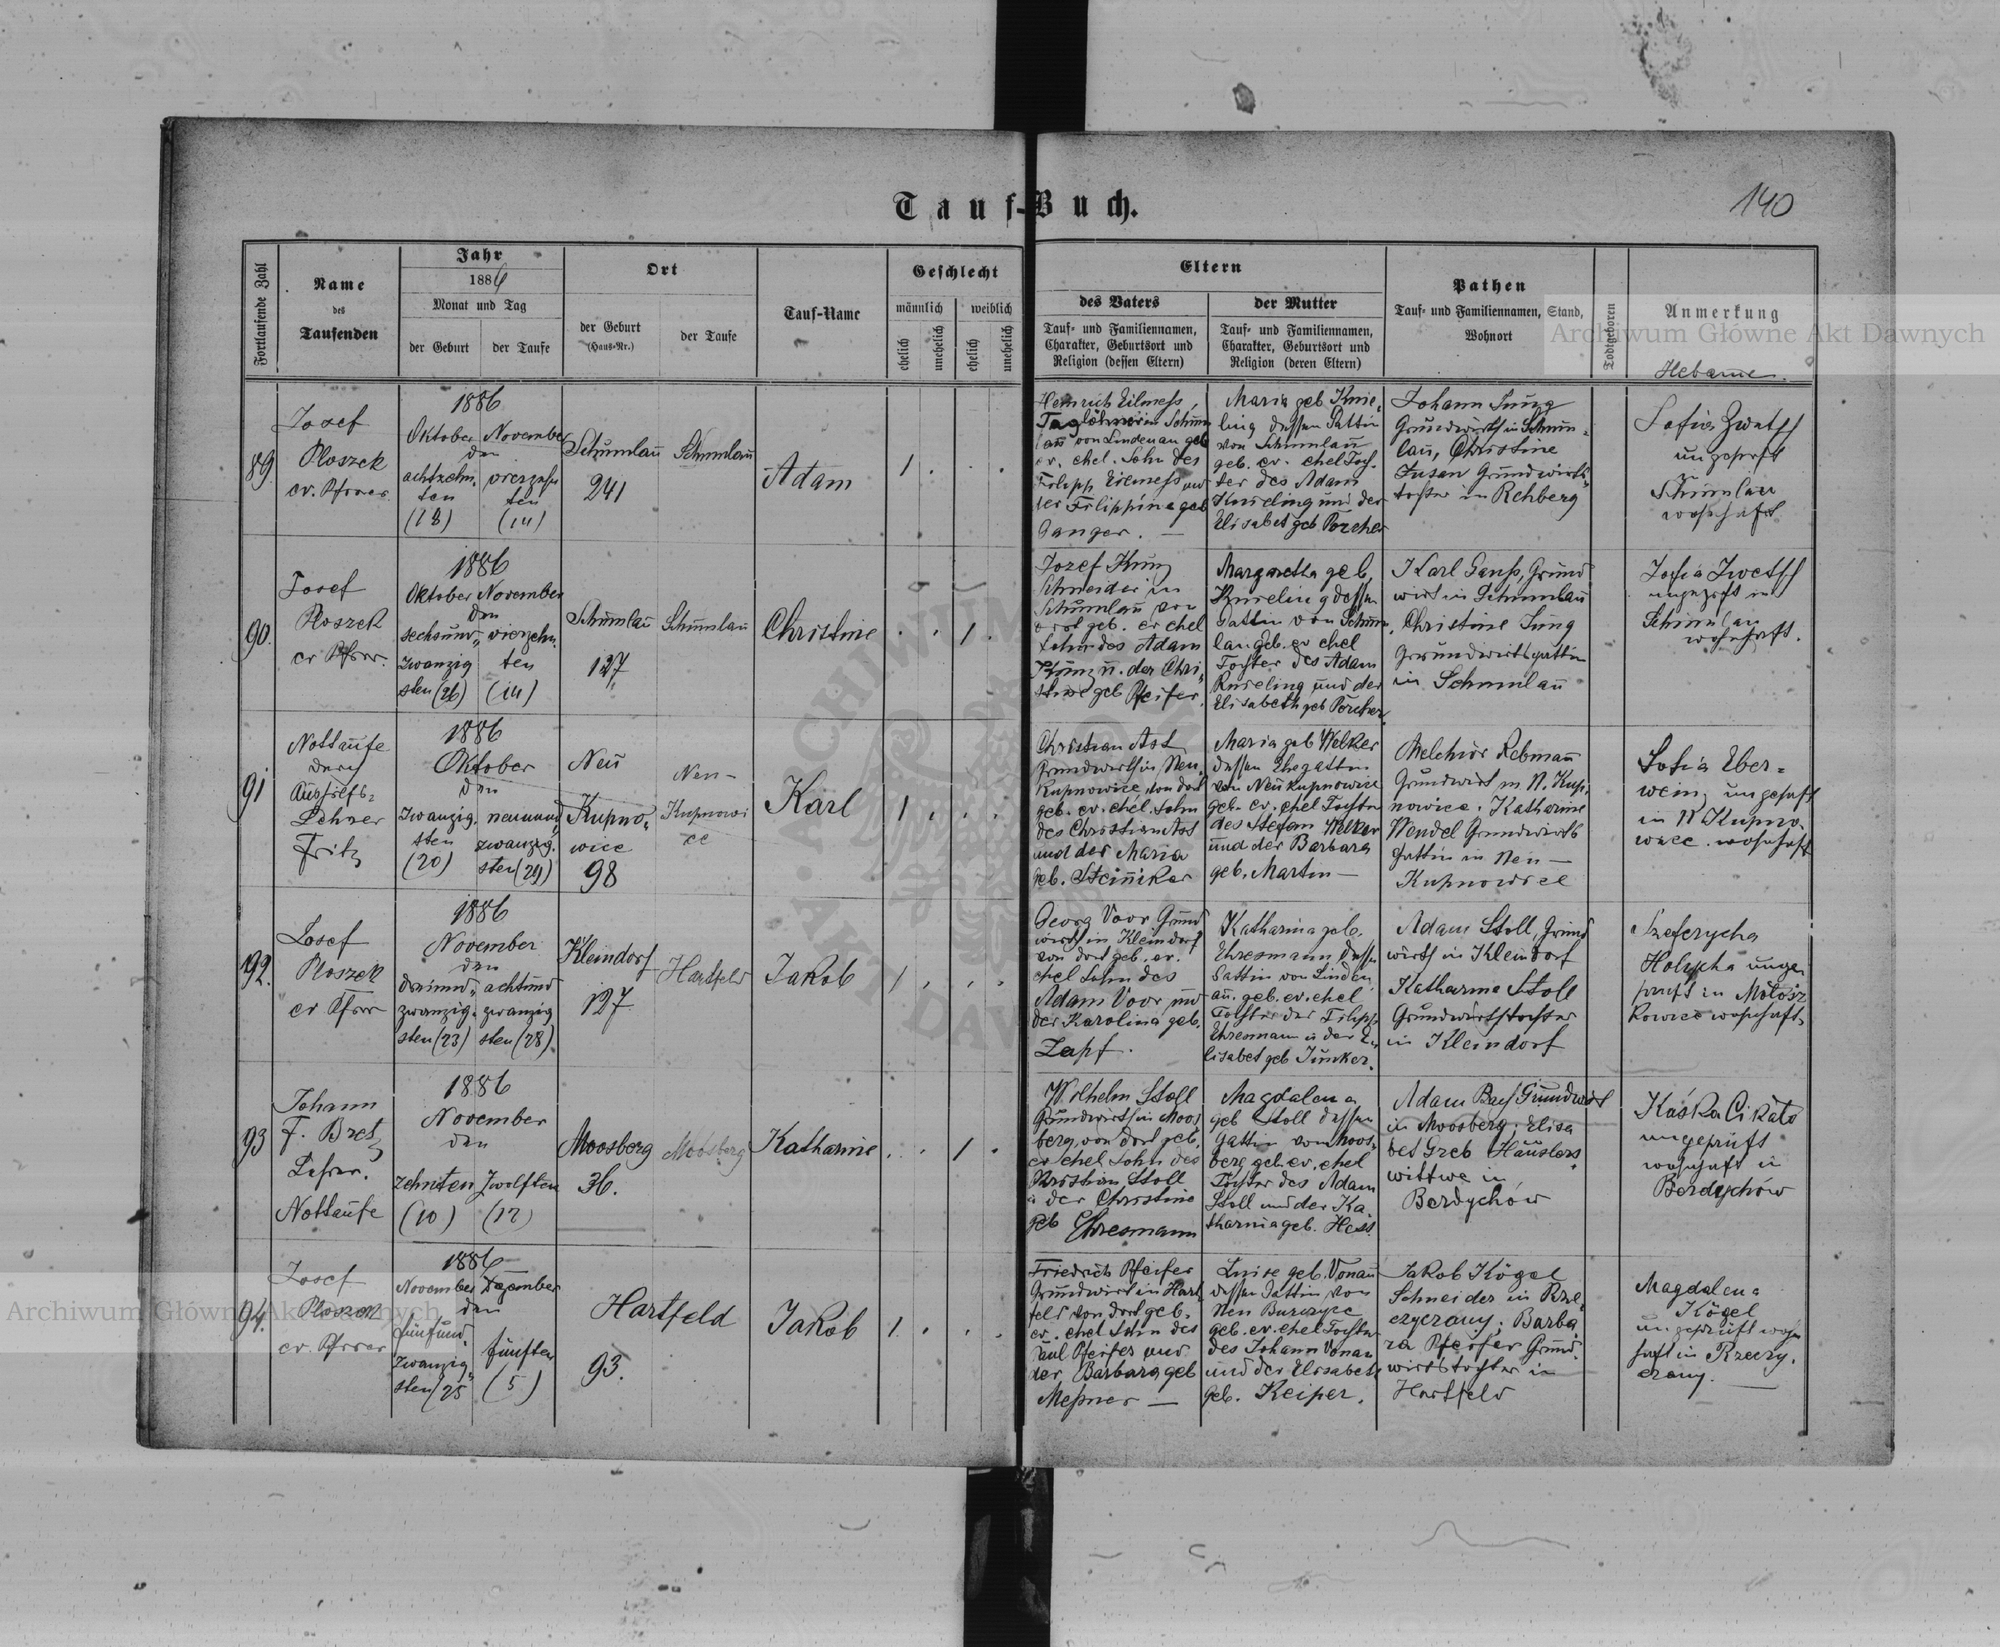 Tauf-Buch.
140
Fortlaufende Zahl
Name
des
Taufenden
Jahr
1886
Monat und Tag
der Geburt
der Taufe
Ort
der Geburt
(Haus-Nr.)
der Taufe
Tauf-Name
Geschlecht
männlich
weiblich
ehelich
unehelich
ehelich
unehelich
Eltern
des Vaters
Tauf- und Familiennamen,
Charakter, Geburtsort und
Religion (dessen Eltern)
der Mutter
Tauf- und Familiennamen,
Charakter, Geburtsort und
Religion (deren Eltern)
Pathen
Tauf- und Familiennamen, Stand,
Wohnort
Todtgeboren
Anmerkung
Hebamme.
89
Josef
Ploszek
ev. Pfarrer
1886
Oktober November
den
achtzehn- vierzehn
ten ten
(18) (14)
Schumlaū
241
Schumlaū
Adam
1
Heinrich Eilmess,
Taglöhner in Schum
laū von Lindenau geb
ev. ehel. Sohn des
Filipp Eilmess und
der Filippina geb
Danger. —
Maria geb Knie-
ling dessen Gattin
von Schumlaū
geb. ev. ehel Toch-
ter des Adam
Knieling und der
Elisabet geb Porcher
Johann Jung
Grundwirth in Schum-
laū, Christine
Jusen Grundwirts-
tochter in Rehberg
Sofia Zwetsch
ungeprüft
Schumlau
wohnhaft
90.
Josef
Ploszek
ev Pfrr.
1886
Oktober November
den
sechsund- vierzehn-
zwanzig ten
sten (26) (14)
Schumlaū
127
Schumlaū
Christine
1
Jozef Kunz
Schneider in
Schumlaū von
dort geb. ev ehel
Sohn des Adam
Kunz u. der Chri-
stine geb Pfeifer.
Margaretha geb.
Knieling dessen
Gattin von Schum
lau geb. ev ehel
Tochter des Adam
Knieling und der
Elisabeth geb Porcher.
Karl Ganss, Grund
wirt in Schumlaū
Christine Jung
Grundwirtsgattin
in Schumlaū
Sofia Zwetsch
ungeprüft in
Schumlau
wohnhaft.
91
Nottaufe
durch
Aushilfs-
Lehrer
Fritz
1886
Oktober
den
zwanzig neunund
sten zwanzig-
(20) sten (29)
Neū
Kupno-
wice
98
Neu-
Kupnowi
ce
Karl
1
Christian Ast
Grundwirth in Neu
Kupnowice, von dort
geb. ev. ehel. Sohn
des Christian Ast
und der Maria
geb. Steiniker
Maria geb Welker
dessen Ehegattin
von Neukupnowice
geb. ev. ehel Tochter
des Stefan Welker
und der Barbara
geb. Martin —
Melchior Rebmann
Grundwirt in N. Kup-
nowice. Katharine
Wendel Grundwirts
gattin in Neu —
Kupnowice
Sofia Eber-
wein ungeprüft
in N Kupno-
wice. wohnhaft
92.
Josef
Ploszek
ev Pfrr
1886
November
den
dreiund- achtund
zwanzig- zwanzig
sten (23) sten (28)
Kleindorf
127
Hartfeld
Jakob
1
Georg Voor Grund
wirth in Kleindorf
von dort geb. ev.
ehel Sohn des
Adam Voor und
der Karolina geb.
Zapf.
Katharina geb.
Ehresmann dessen
Gattin von Linden
au. geb. ev. ehel
Tochter der Filipp
Ehresmann u der E-
lisabet geb Junker.
Adam Stoll, Grund
wirth in Kleindorf
Katharina Stoll
Grundwirtstochter
in Kleindorf
Holypha unge-
prüft in Molosz
kowice wohnhaft
93
Johann
F. Bretz
Lehrer.
Nottaufe
1886
November
den
zehnten zwölften
(10) (12)
Moosberg
36.
Moosberg
Katharine
1
Wilhelm Stoll
Grundwirth in Moos
berg, von dort geb.
ev ehel Sohn des
Christian Stoll
u der Christine
geb Ehresmann
Magdalena
geb Stoll dessen
Gattin von Moos-
berg geb. ev. ehel
Tochter des Adam
Stoll und der Ka-
tharina geb. Hess.
Adam Bach Grundwirt
in Moosberg; Elisa
bet Greb Häuslers
wittwe in
Berdychów
Kaśka Cikało
ungeprüft
wohnhaft in
Berdychów
94.
Josef
Ploszek
ev. Pfarrer
1886
November Dezember
den
fünfund- fünften
zwanzig- (5)
sten (25
Hartfeld
93.
Jakob
1.
Friedrich Pfeifer
Grundwirt in Hart
feld von dort geb.
ev. ehel Sohn des
Paul Pfeifer und
der Barbara geb
Messner —
Luise geb. Vonaū
dessen Gattin von
Neu Burczyce
geb. ev. ehel Tochter
des Johann Vonau
und der Elisabeth
geb. Keiper.
Jakob Kögel
Schneider in Rze-
czyczany; Barba
ra Pfeifer Grund-
wirtstochter in
Hartfeld
Magdalena
Kögel
ungeprüft wohn
haft in Rzeczy-
czany. —
Archiwum Główne Akt Dawnych
Archiwum Główne Akt Dawnych
ARCHIWUM
AKT DAW